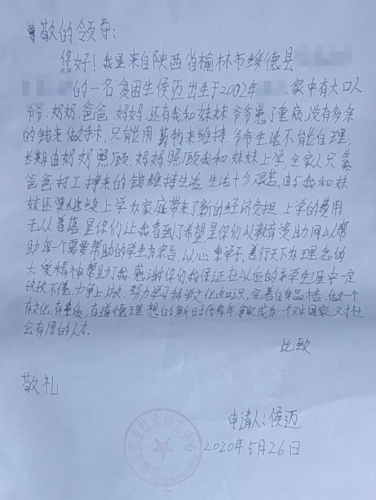 尊敬的领导:
您好!我是来自陕西省榆林市绥德县
的一名贫困生侯迈出生于2002年 家中有六口人
爷爷.奶奶.爸爸 妈妈.还有我和妹妹 爷爷患了重病,没有多余
的钱来做手术,只能用药物来维持.爷爷生活不能自理,
长期由奶奶照顾.妈妈照顾我和妹妹上学,全家人只靠
爸爸打工挣来的钱维持生活.生活十分艰苦,由于我和妹
妹还要继续上学为家庭带来了新的经济负担.上学的费用
无从着落.是你们让我看到了希望是你们以教育援助网以帮
助每个需要帮助的学生为宗旨,以心 学子,善行天下为理念的
大爱精神帮助了我.感谢你们我保证在以后的求学生涯中一定
孜孜不倦.力争上游.努力学习科学文化知识,完善自身品格.做一个
有文化.有 在道德理想的新时代青年.争取成为一个对国家.又对社
会有用的人才.
此致
敬礼
申请人:侯迈
2020年5月26日